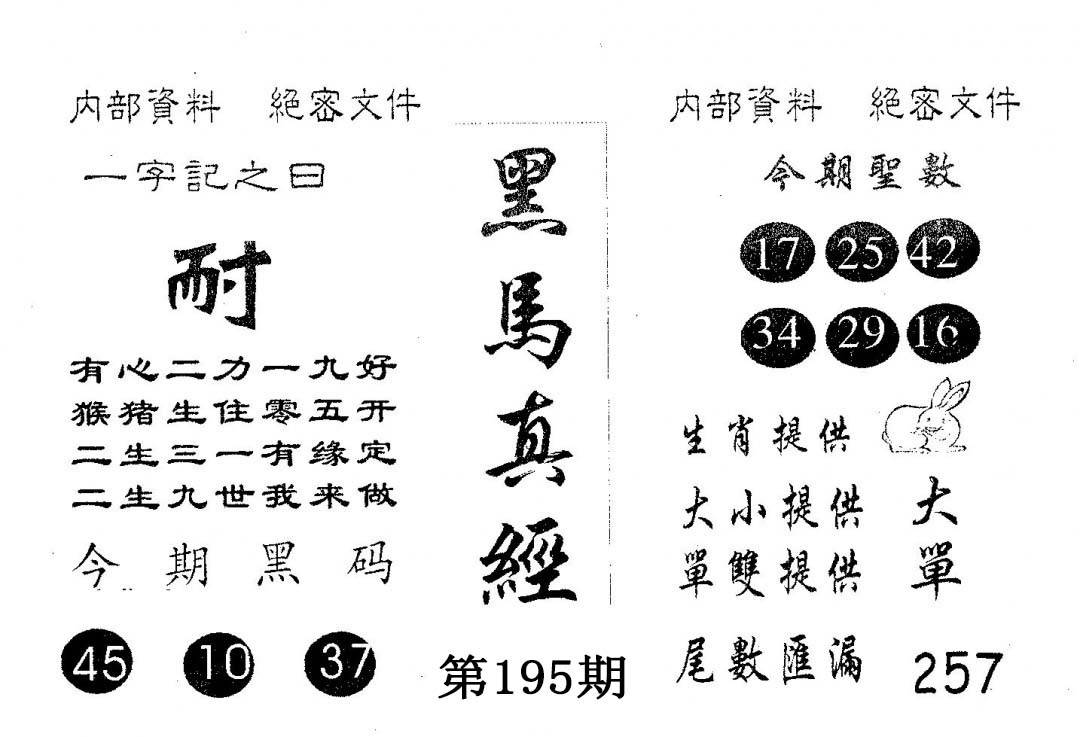 内部資料 絕密文件
一字記之曰
耐
有心二力一九好
猴猪生住零五开
二生三一有缘定
二生九世我来做
今期黑码
45 10 37
黑馬真經
第195期
内部資料 絕密文件
今期聖數
17 25 42
34 29 16
生肖提供
大小提供 大
單雙提供 單
尾數匯漏 257